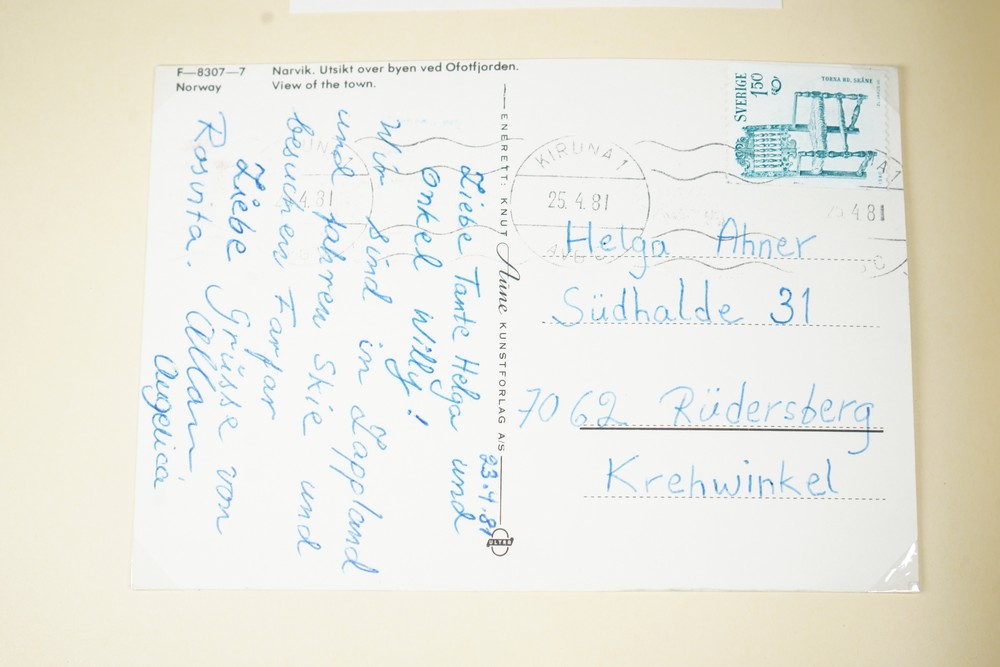 F—8307—7 Narvik. Utsikt over byen ved Ofotfjorden.
Norway View of the town.
23.4.81
Liebe Tante Helga und
Onkel Willy!
Wir sind in Lappland
und fahren Skie und
besuchen Farfar
Liebe Grüsse von
Rosvita. Allan
Angelica
ENERETT: KNUT Aune KUNSTFORLAG A/S
ULTRA
SVERIGE 150
TORNA HD, SKÅNE
KIRUNA 1
25.4.81
AVG C
4.81
25.4.81
Helga Ahner
Südhalde 31
7062 Rüdersberg
Krehwinkel